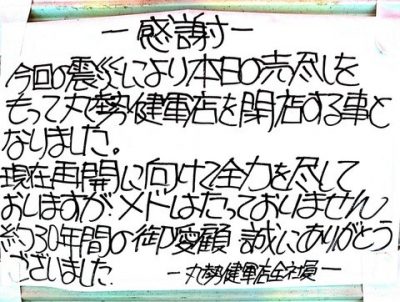 ー感謝ー
今回の震災により本日の売尽しを
もって丸勢健軍店を閉店する事と
なりました。
現在再開に向けて全力を尽して
おしますが、メドはたっておしません
約30年間の御愛顧 誠にありがとう
ございました
ー丸勢健軍店全社員ー